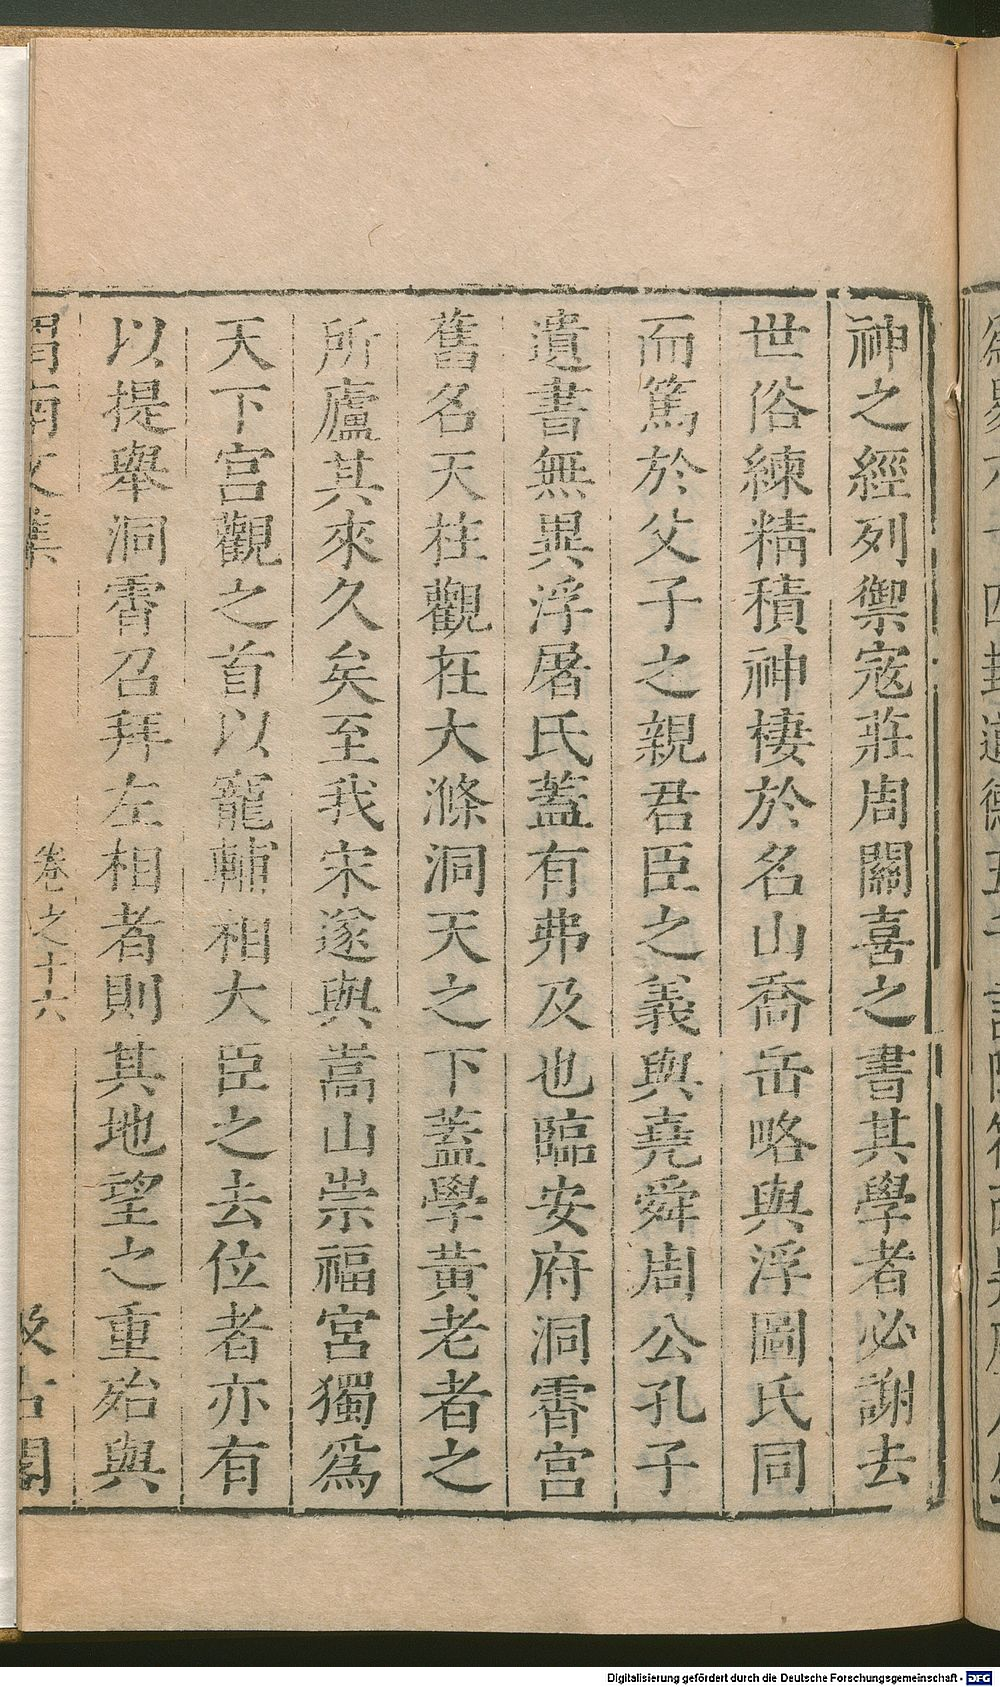 神之經列禦寇莊周關喜之書其學者必謝去
世俗練精積神棲於名山喬岳略與浮圖氏同
而篤於父子之親君臣之義與堯舜周公孔子
遺書無異浮屠氏蓋有弗及也臨安府洞霄宮
舊名天柱觀在大滌洞天之下蓋學黃老者之
所廬其來久矣至我宋遂與嵩山崇福宮獨爲
天下宮觀之首以寵輔相大臣之去位者亦有
以提舉洞霄召拜左相者則其地望之重殆與
渭南文集 卷之十六 汲古閣
Digitalisierung gefördert durch die Deutsche Forschungsgemeinschaft - DFG